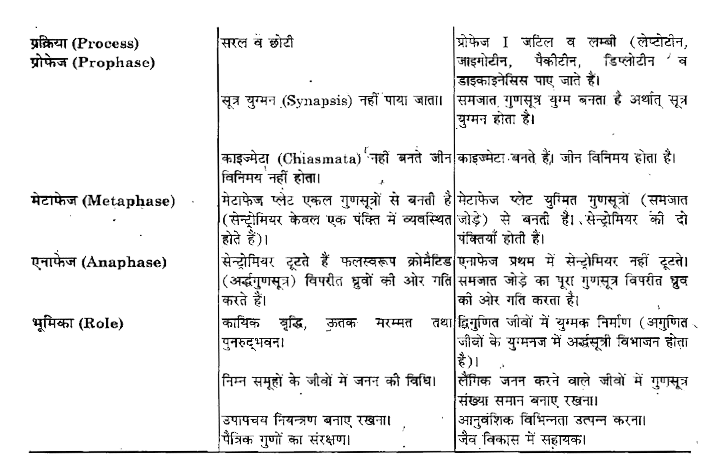 प्रक्रिया (Process)
प्रोफेज (Prophase)
सरल व छोटी
प्रोफेज I जटिल व लम्बी (लेप्टोटीन,
जाइगोटीन, पैकीटीन, डिप्लोटीन व
डाइकाइनेसिस पाए जाते हैं।
सूत्र युग्मन (Synapsis) नहीं पाया जाता।
समजात गुणसूत्र युग्म बनता है अर्थात् सूत्र
युग्मन होता है।
काइज्मेटा (Chiasmata) नहीं बनते जीन
विनिमय नहीं होता।
काइज्मेटा बनते हैं। जीन विनिमय होता है।
मेटाफेज (Metaphase)
मेटाफेज प्लेट एकल गुणसूत्रों से बनती है
(सेन्ट्रोमियर केवल एक पंक्ति में व्यवस्थित
होते हैं)।
मेटाफेज प्लेट युग्मित गुणसूत्रों (समजात
जोड़े) से बनती है। सेन्ट्रोमियर की दो
पंक्तियाँ होती हैं।
एनाफेज (Anaphase)
सेन्ट्रोमियर टूटते हैं फलस्वरूप क्रोमैटिड
(अर्द्धगुणसूत्र) विपरीत ध्रुवों की ओर गति
करते हैं।
एनाफेज प्रथम में सेन्ट्रोमियर नहीं टूटते।
समजात जोड़े का पूरा गुणसूत्र विपरीत ध्रुव
की ओर गति करता है।
भूमिका (Role)
कायिक वृद्धि, ऊतक मरम्मत तथा
पुनरुद्भवन।
द्विगुणित जीवों में युग्मक निर्माण (अगुणित
जीवों के युग्मनज में अर्द्धसूत्री विभाजन होता
है)।
निम्न समूहों के जीवों में जनन की विधि।
लैंगिक जनन करने वाले जीवों में गुणसूत्र
संख्या समान बनाए रखना।
उपापचय नियन्त्रण बनाए रखना।
आनुवंशिक विभिन्नता उत्पन्न करना।
पैत्रिक गुणों का संरक्षण।
जैव विकास में सहायक।